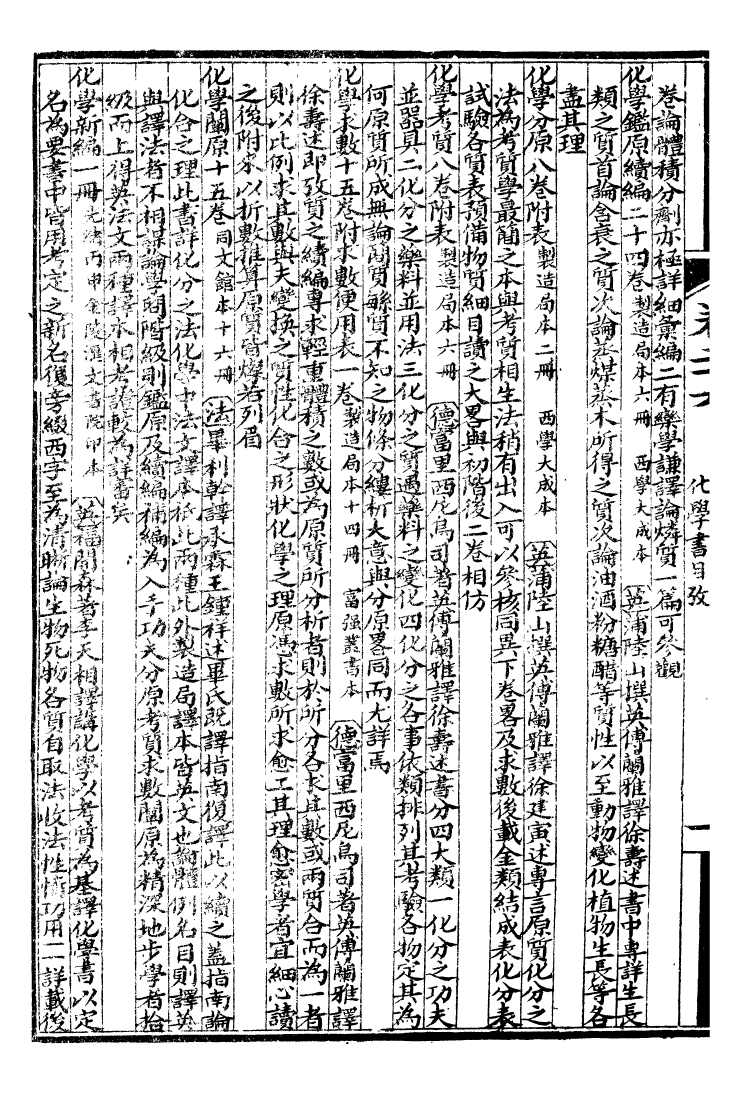 化學書目攷
卷論體積分劑亦極詳細彙編二有欒學謙譯論燐質一篇可參觀
化學鑑原續編二十四卷 製造局本六冊 西學大成本 英蒲陸山撰英傅蘭雅譯徐壽述書中專詳生長
類之質首論含衰之質次論蒸煤蒸木所得之質次論油酒粉糖醋等質性以至動物變化植物生長等各
盡其理
化學分原八卷附表 製造局本二冊 西學大成本 英蒲陸山撰英傅蘭雅譯徐建寅述專言原質化分之
法為考質學最簡之本與考質相生法稍有出入可以參核同異下卷畧及求數後載金類結成表化分表
試驗各質表預備物質細目讀之大畧與初階後二卷相仿
化學考質八卷附表 製造局本六冊 德富里西尼烏司著英傅蘭雅譯徐壽述書分四大類一化分之功夫
並器具二化分之藥料並用法三化分之質遇藥料之變化四化分之各事依類排列其考驗各物定其為
何原質所成無論簡質繇質不知之物條分縷析大意與分原畧同而尤詳焉
化學求數十五卷附求數便用表一卷 製造局本十四冊 富强叢書本 德富里西尼烏司著英傅蘭雅譯
徐壽述即攷質之續編專求輕重體積之數或為原質所分析者則於所分各求其數或兩質合而為一者
則以比例求其數與夫變換之質性化合之形狀化學之理原憑求數所求愈工其理愈密學者宜細心讀
之後附求以折數推算原質皆燦若列眉
化學闡原十五卷 同文館本十六冊 法畢利幹譯承霖王鍾祥述畢氏既譯指南復譯此以續之蓋指南論
化合之理此書詳化分之法化學中法文譯本祇此兩種此外製造局譯本皆英文也論體例名目則譯英
與譯法者不相謀論學問階級則鑑原及續編補編為入手功夫分原考質求數闡原為精深地步學者拾
級而上得英法文兩種譯本相考證較為詳審矣
化學新編一冊 光緒丙申金陵滙文書院印本 英福開森著李天相譯講化學以考質為基譯化學書以定
名為要書中皆用考定之新名復旁綴西字至為清晰論生物死物各質自取法收法性情功用一一詳載後